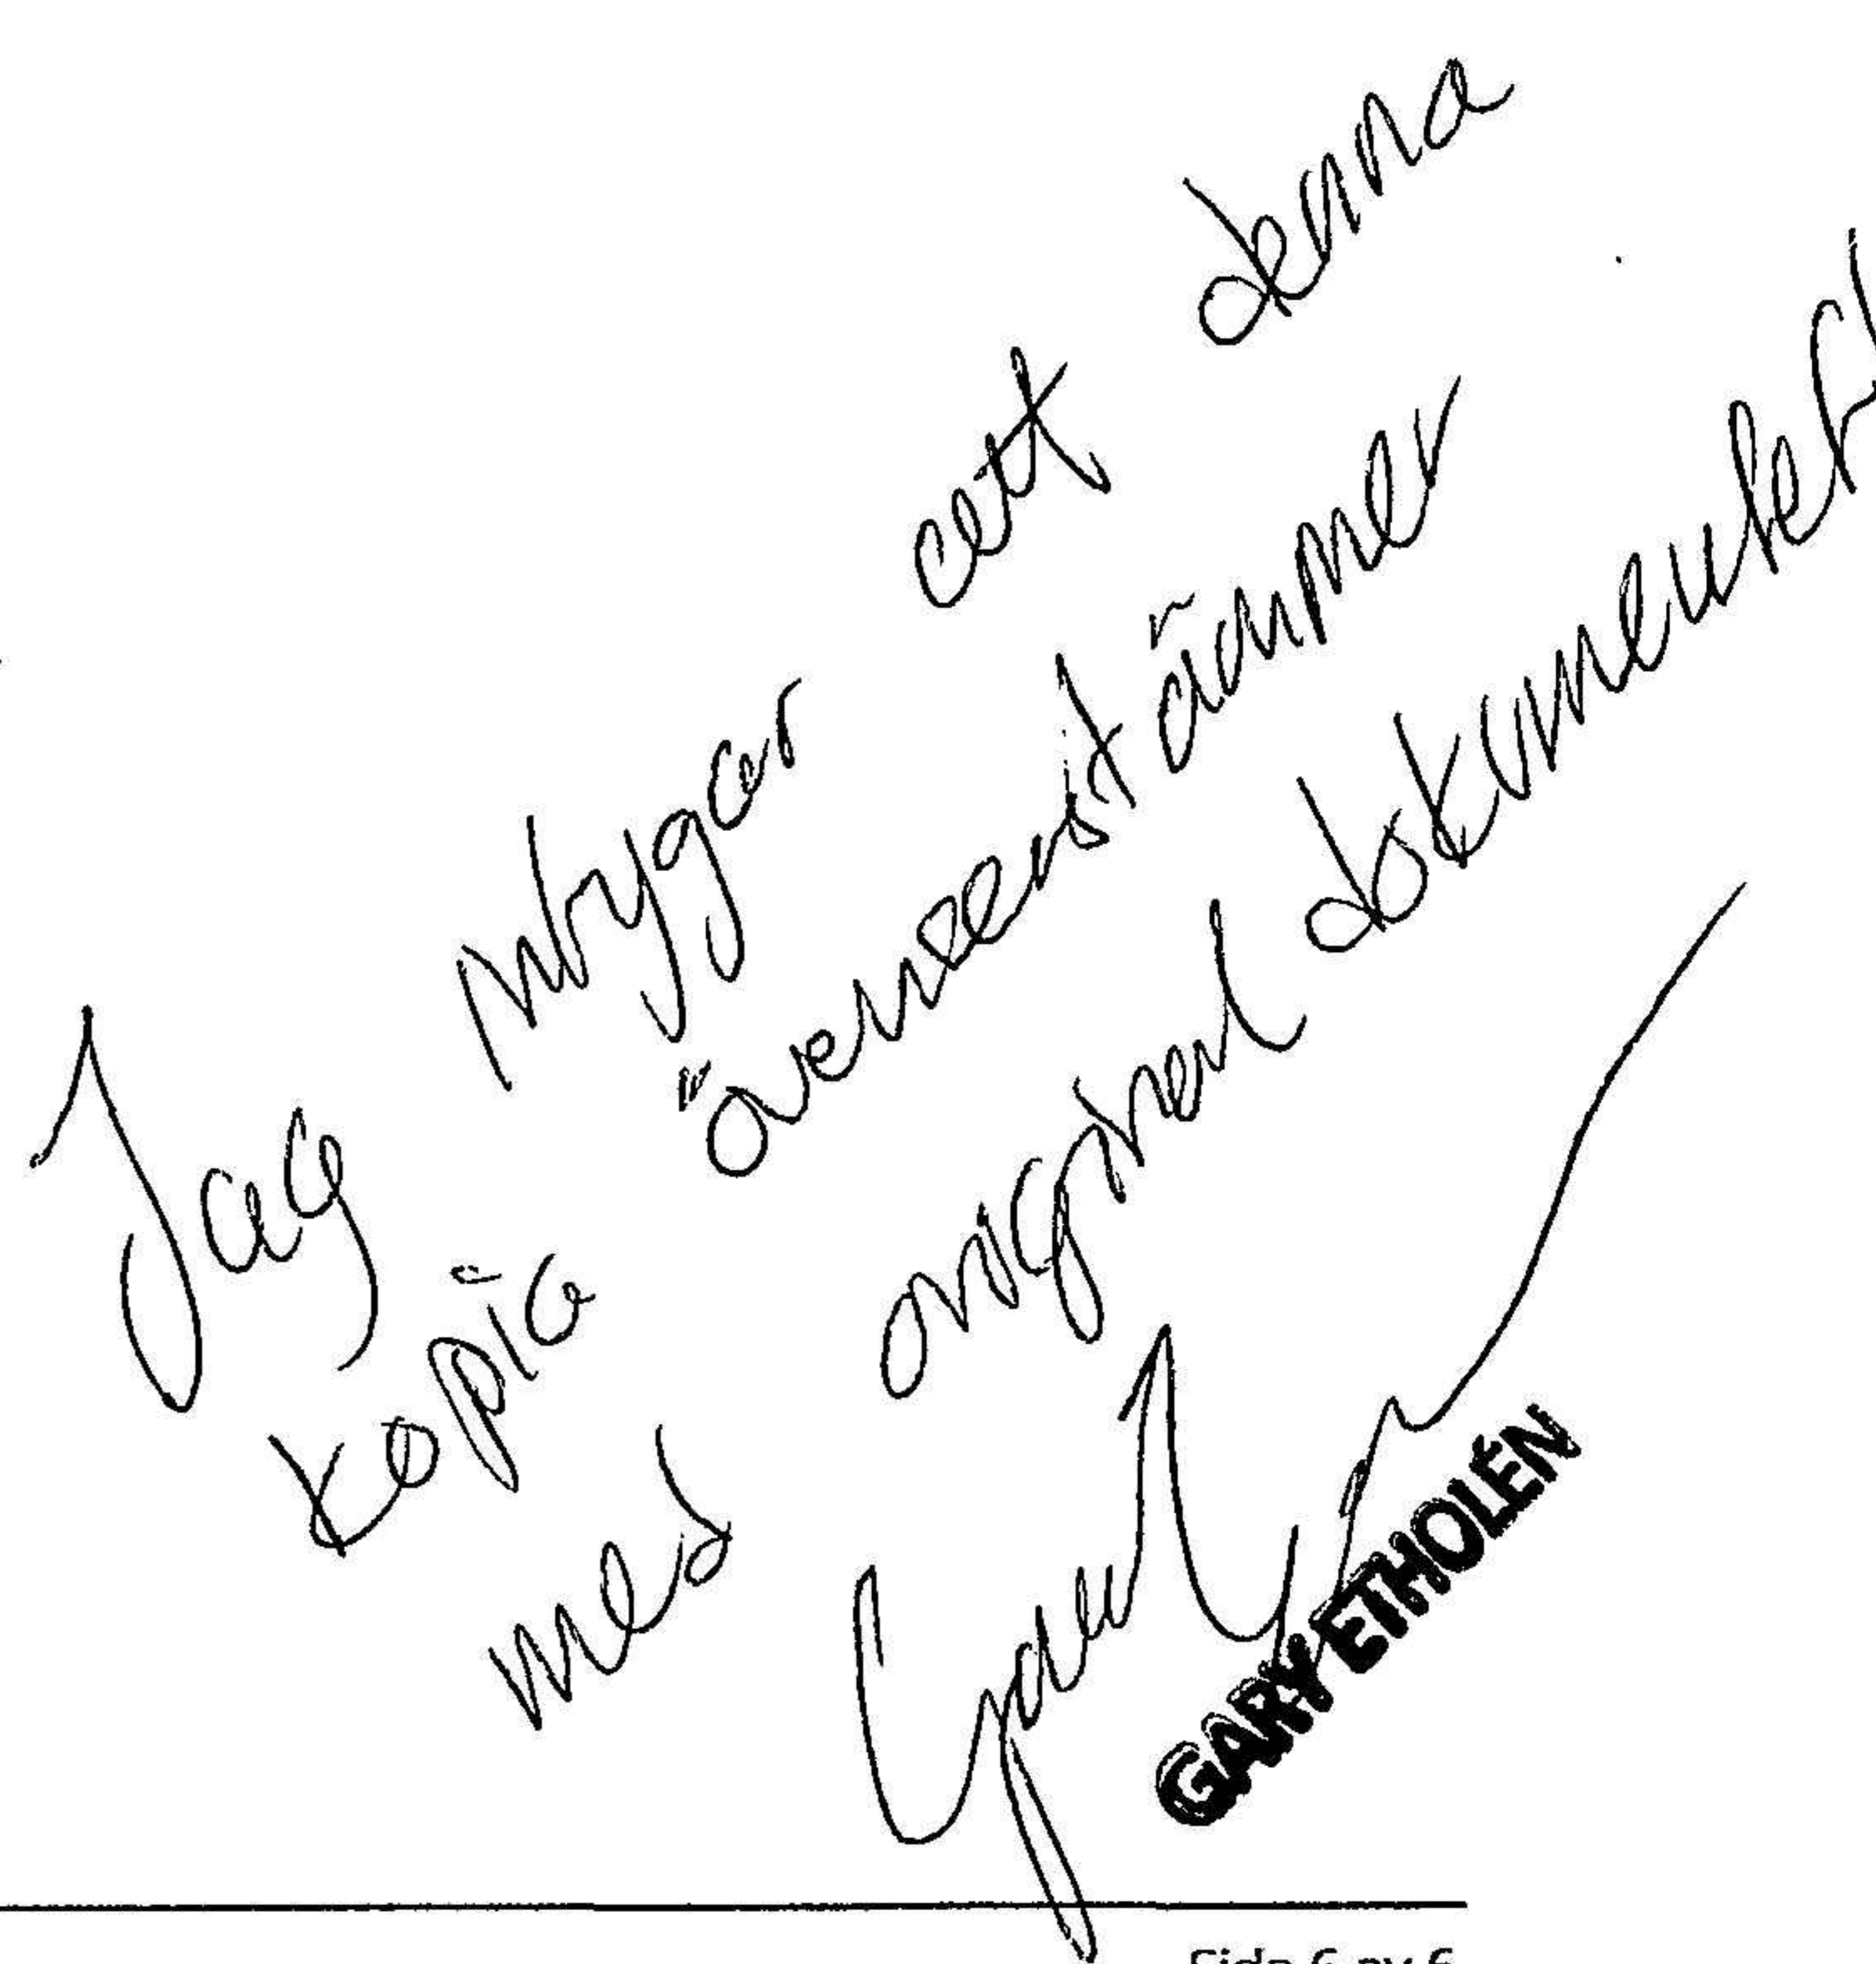 Jag intygar att denna
kopia överensstämmer
med original dokumentet
GARY ETHOLÉN
Sida 6 av 6